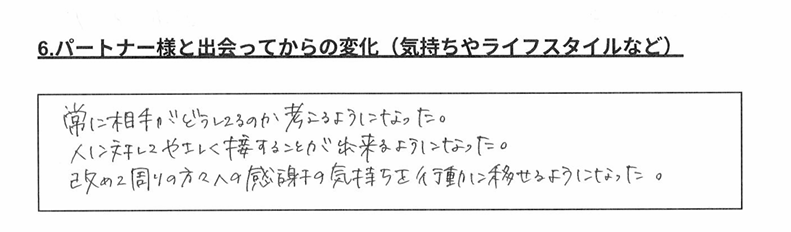 6.パートナー様と出会ってからの変化（気持ちやライフスタイルなど）
常に相手がどうしてるのか考えるようになった。
人に対してやさしく接することが出来るようになった。
改めて周りの方々への感謝の気持ちを行動に移せるようになった。